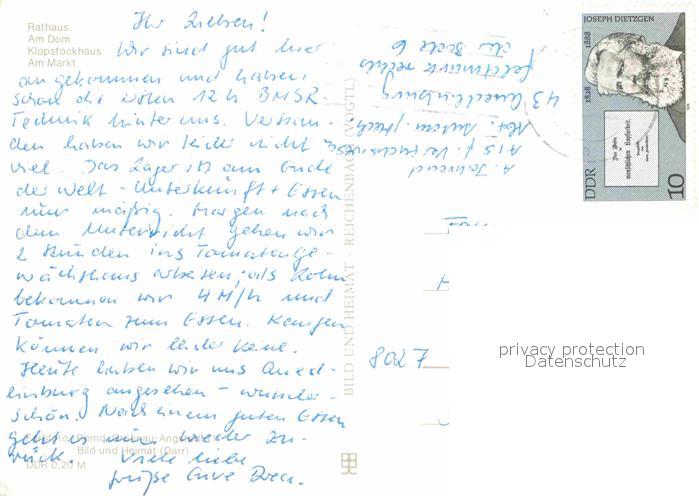 Rathaus
Am Dom
Klopstockhaus
Am Markt
Ihr Lieben!
Wir sind gut hier
angekommen und haben
schon die ersten 12 h BMSR
Technik hinter uns. Verstan-
den haben wir leider nicht
viel. Das Lager ist am Ende
der Welt - Unterkunft + Essen
nur mäßig. Morgen nach
dem Unterricht gehen wir
2 Stunden ins Tomatenge-
wächshaus arbeiten; als Lohn
bekommen wir 4 M/h und
Tomaten zum Essen. Kaufen
können wir leider keine.
Heute haben wir uns Qued-
linburg angesehen - wunder-
schön. Nach einem guten Essen
geht es nun wieder zu-
rück. Viele liebe
Grüße Eure
Bild und Heimat (Darr)
DDR 0,20 M
BILD UND HEIMAT REICHENBACH (VOGTL)
A.
43 Quedlinburg
802
JOSEPH DIETZGEN
1828 1888
DDR
10
privacy protection
Datenschutz